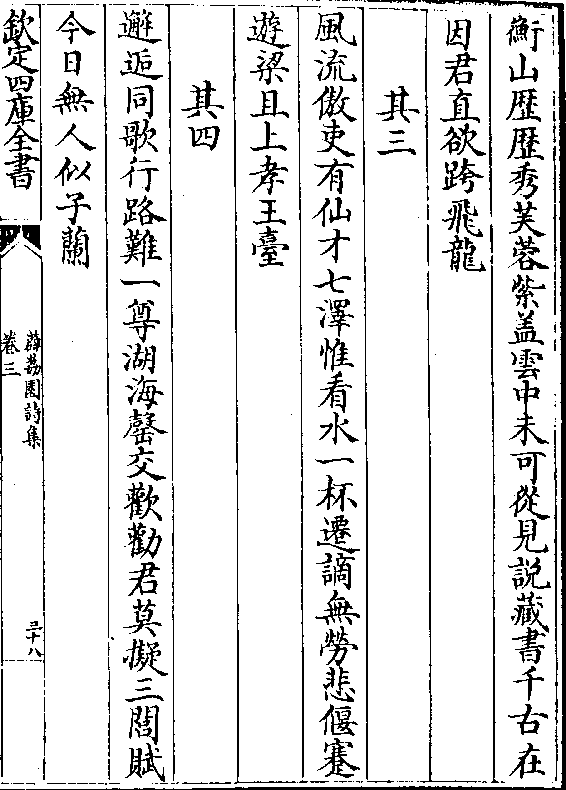 衡山歴歴秀芙蓉紫盖雲中未可從見説藏書千古在
因君直欲跨飛龍
其三
風流傲吏有仙才七澤惟看水一杯遷謫無勞悲偃蹇
遊梁且上孝王臺
其四
邂逅同歌行路難一尊湖海罄交歡勸君莫擬三閭賦
今日無人似子蘭
欽定四庫全書
薜荔園詩集
卷三
三十八